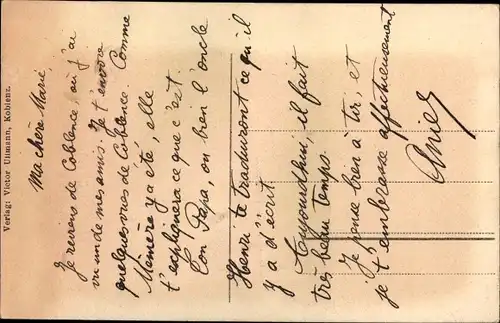 Ma chère Marie
Je reviens de Coblence, où j'ai
vu un de mes amis. Je t'envoie
quelques vues de Coblence. Comme
Mémère y a été, elle
t'expliquera ce que c'est.
Ton Papa, ou bien l'oncle
Henri te traduiront ce qu'il
y a d'écrit.
Aujourdhui, il fait
très beau temps.
Je pense bien à toi, et
je t'embrasse affectueusement
Verlag: Victor Uhmann, Koblenz.